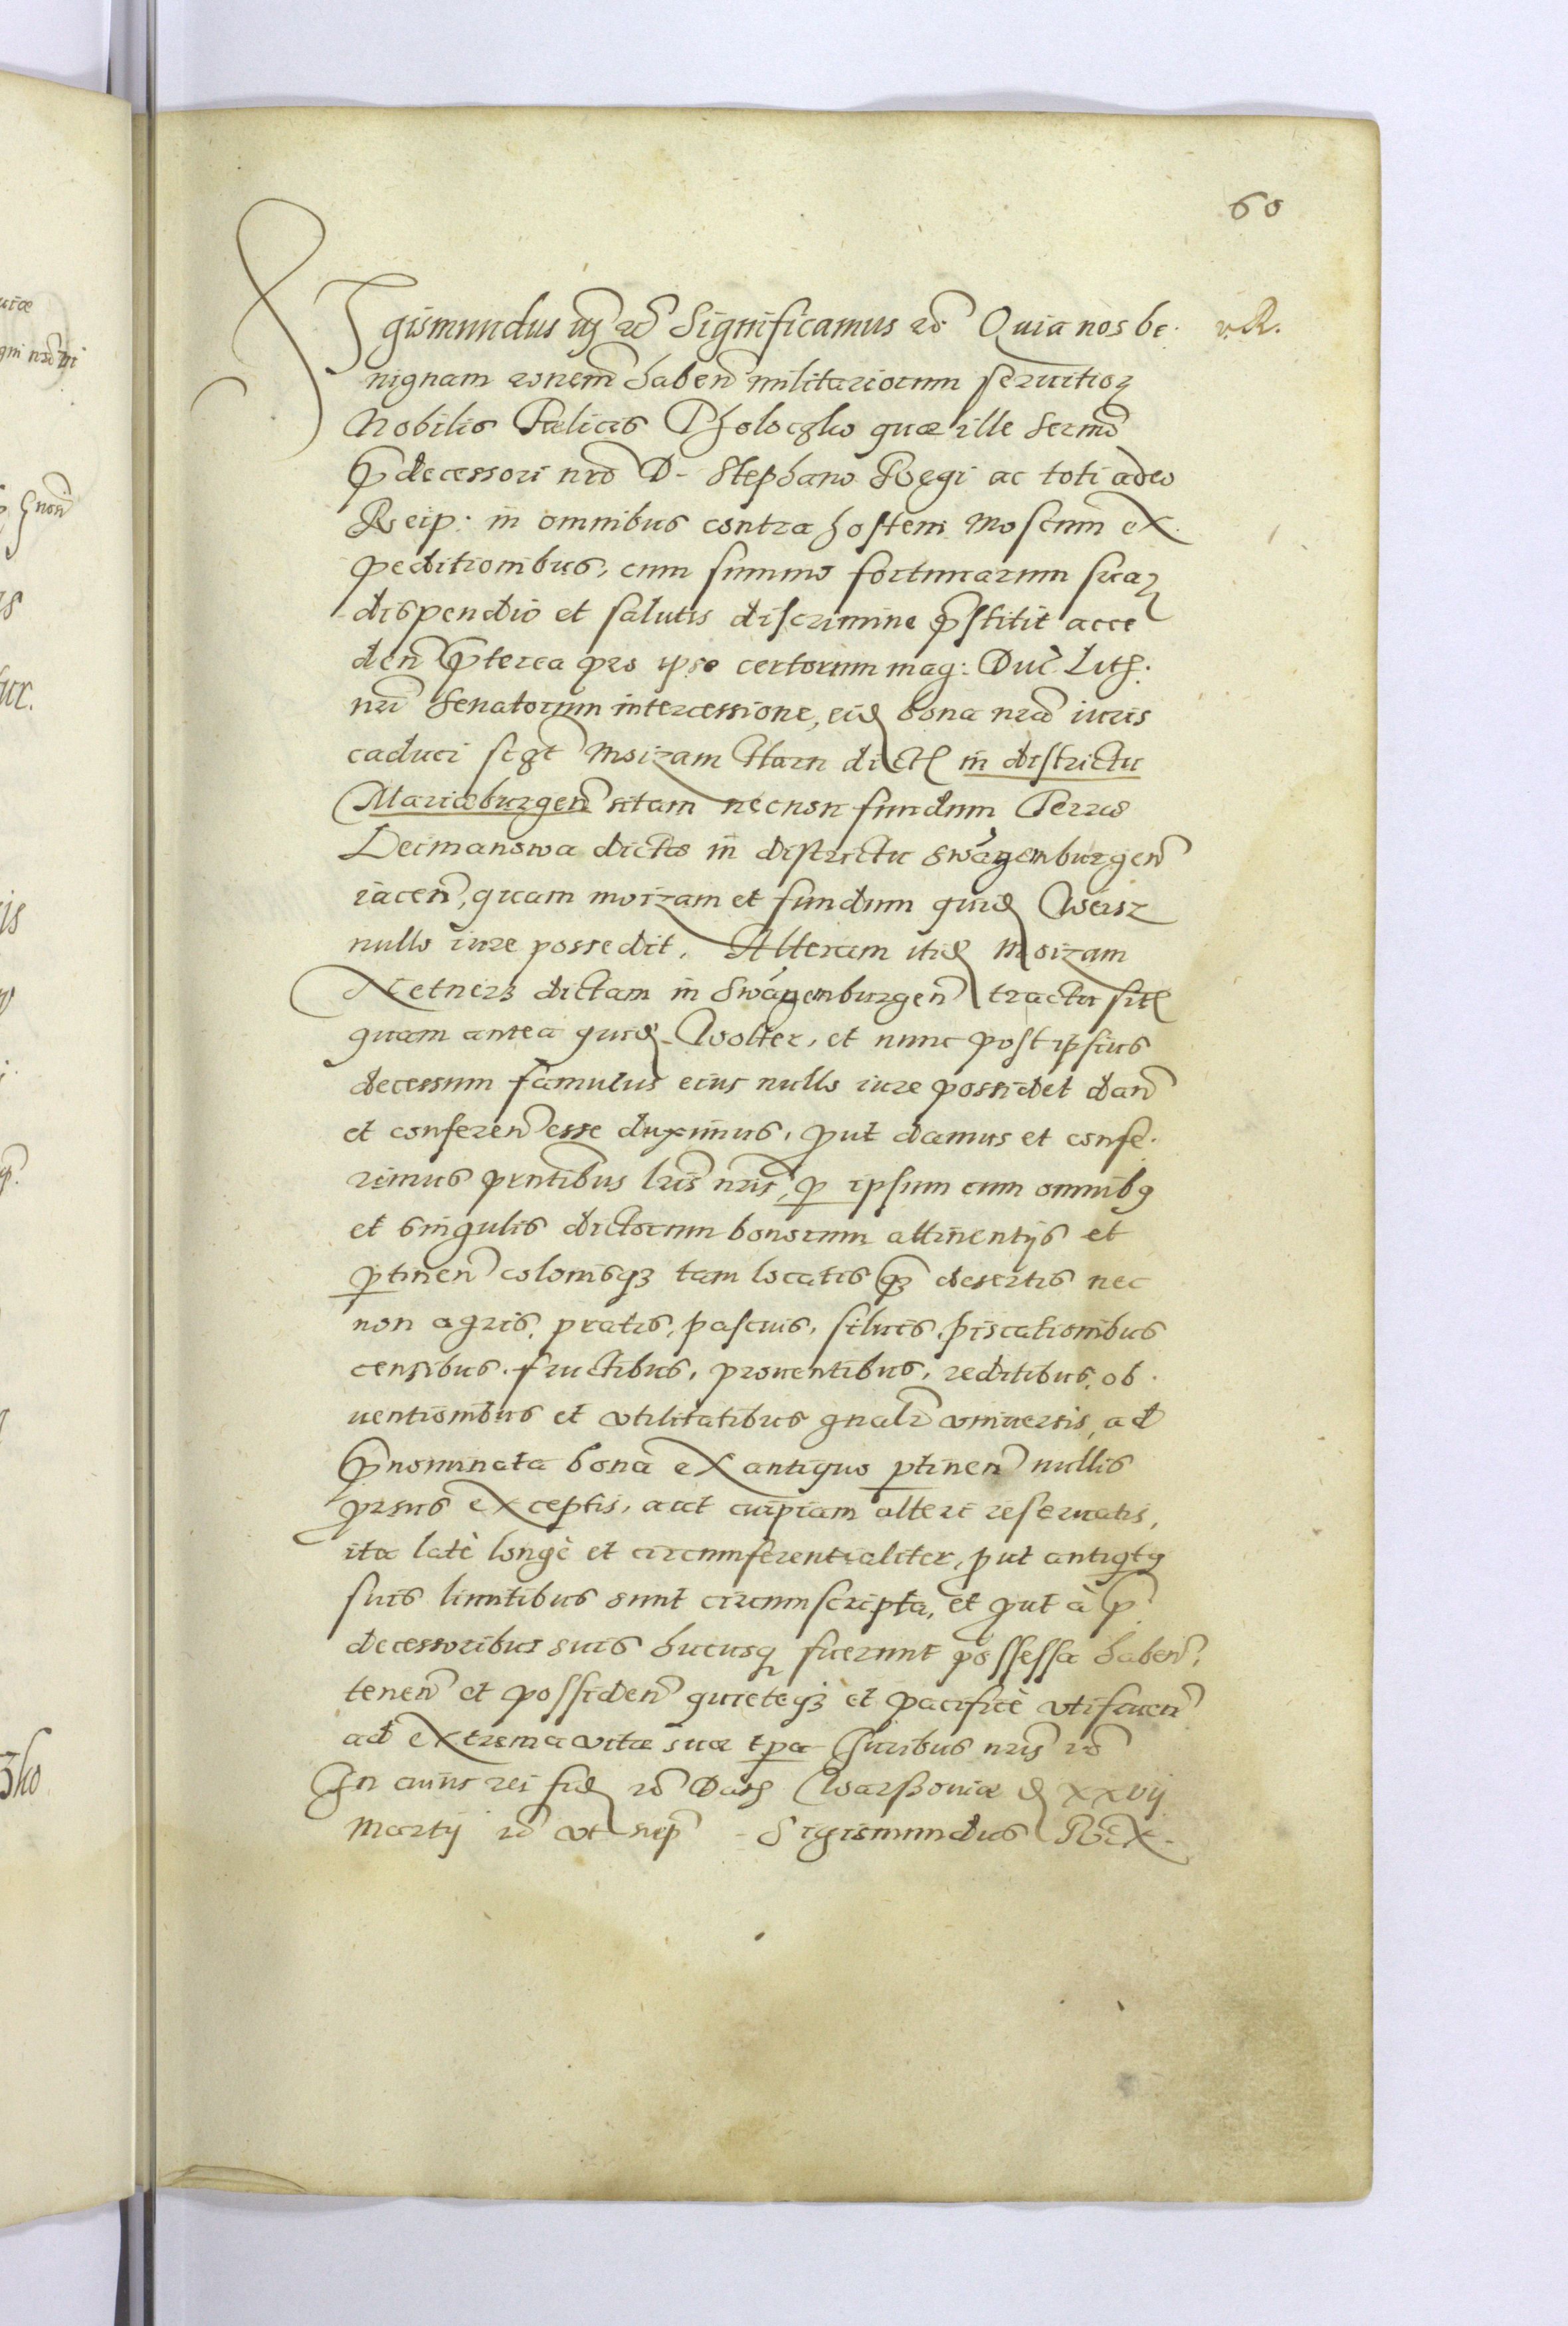 60
Sigismundus iijs rc Significamus rc Quia nos be. v.R.
nignam ronem haben militariorum seruitioꝝ
Nobilis Fælicis Pholoczko quæ ille Sermo
prdecessori nro D. Stephano Regi ac toti adeo
Reip: in omnibus contra hostem Moscum ex
peditionibus, cum summo fortunarum suaꝝ
dispendio et salutis discrimine prstitit acce
den prterea pro ipso certorum mag: Duc Lith:
nri Senatorum intercessione, eid bona nra iuris
caduci sczt Moizam Harn dict in districtu
Mariæburgen sitam necnon fundum Terræ
Leimanowa dicto in districtu Swanenburgen
iacen, quam moizam et fundum quid Weisz
nullo iure possedit. Alteram itid Moizam
Ketnerz dictam in Swanenburgen tractu sit
quam antea quid Wolter, et nunc post ipsius
decessum famulus eius nullo iure possidet dan
et conferen esse duximus, put damus et confe.
rimus pntibus lris nris, p ipsum cum omnibꝫ
et singulis dictorum bonorum attinentijs et
ptinen colonisqꝫ tam locatis qꝫ desertis nec
non agris, pratis, pascuis, siluis, piscationibus
censibus, fructibus, prouentibus, reditibus, ob.
uentionibus et vtilitatibus gnalr vniuersis, ad
prnominata bona ex antiquo ptinen nullis
prsus exceptis, aut cuipiam alteri reseruatis,
ita latè longè et circumferentialiter, put antiqtꝫ
suis limitibus sunt circumscripta, et put à pr
decessoribus suis hucusqꝫ fuerunt possessa haben,
tenen et possiden quieteqꝫ et pacificè vtifruen
ad extrema vitæ suæ tpa Juribus nris rc
In cuius rei fid rc Dat Warssouiæ d xxvij
Martij rc vt sup Sigismundus Rex.